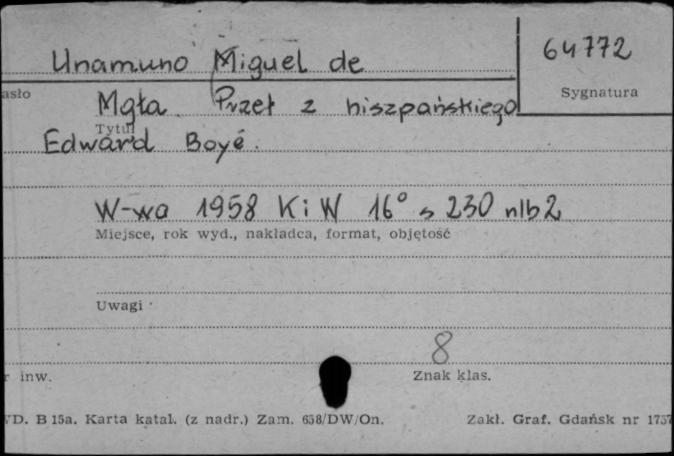 Unamuno Miguel de
64772
asło
Sygnatura
Mgła. Przeł z hiszpańskiego
Tytuł
Edward Boyé.
W-wa 1958 KiW 16° s 230 nlb 2
Miejsce, rok wyd., nakładca, format, objętość
Uwagi
8
r inw.
Znak klas.
D. B 15a. Karta katal. (z nadr.) Zam. 658/DW/On.
Zakł. Graf. Gdańsk nr 1757